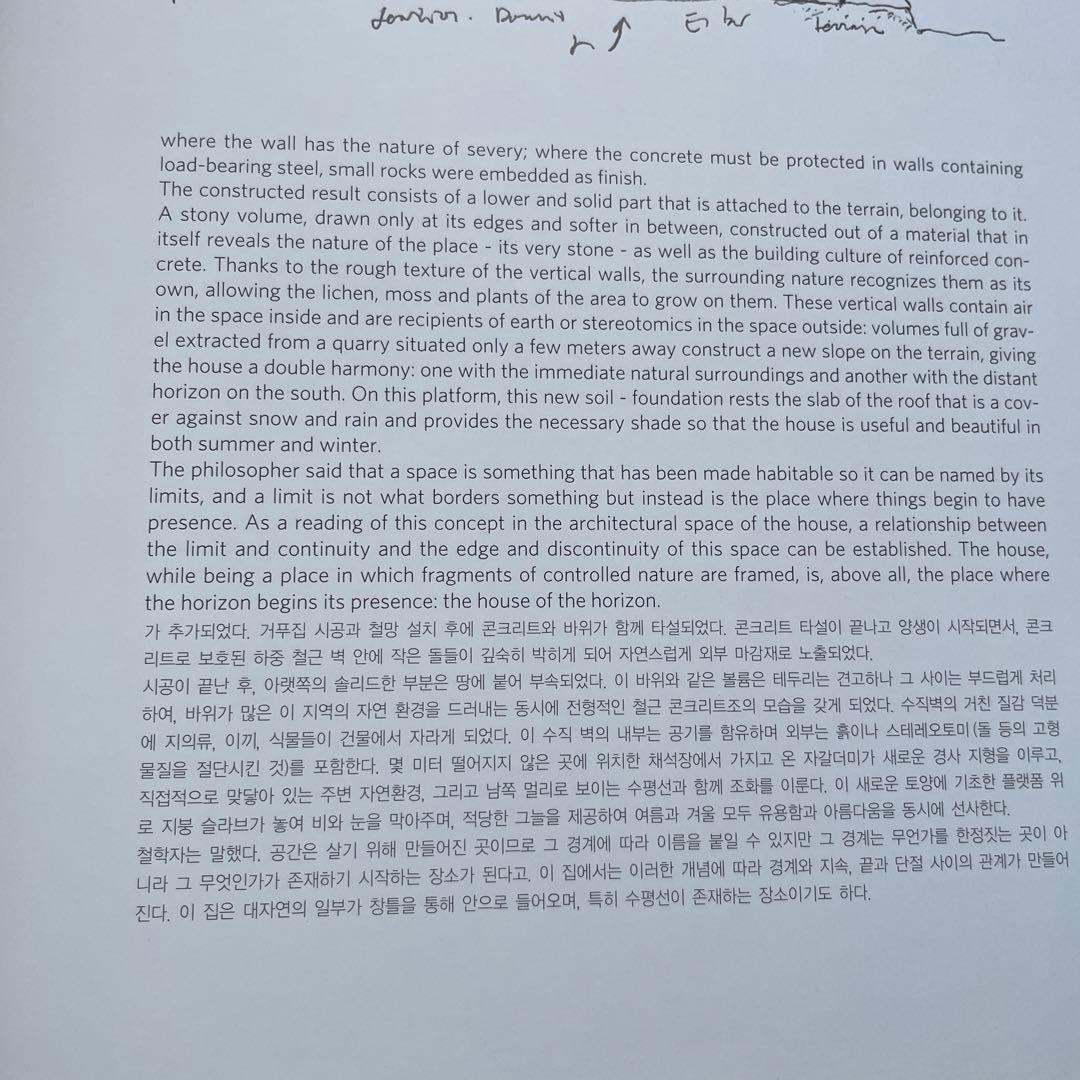 where the wall has the nature of severy; where the concrete must be protected in walls containing
load-bearing steel, small rocks were embedded as finish.
The constructed result consists of a lower and solid part that is attached to the terrain, belonging to it.
A stony volume, drawn only at its edges and softer in between, constructed out of a material that in
itself reveals the nature of the place - its very stone - as well as the building culture of reinforced con-
crete. Thanks to the rough texture of the vertical walls, the surrounding nature recognizes them as its
own, allowing the lichen, moss and plants of the area to grow on them. These vertical walls contain air
in the space inside and are recipients of earth or stereotomics in the space outside: volumes full of grav-
el extracted from a quarry situated only a few meters away construct a new slope on the terrain, giving
the house a double harmony: one with the immediate natural surroundings and another with the distant
horizon on the south. On this platform, this new soil - foundation rests the slab of the roof that is a cov-
er against snow and rain and provides the necessary shade so that the house is useful and beautiful in
both summer and winter.
The philosopher said that a space is something that has been made habitable so it can be named by its
limits, and a limit is not what borders something but instead is the place where things begin to have
presence. As a reading of this concept in the architectural space of the house, a relationship between
the limit and continuity and the edge and discontinuity of this space can be established. The house,
while being a place in which fragments of controlled nature are framed, is, above all, the place where
the horizon begins its presence: the house of the horizon.
가 추가되었다. 거푸집 시공과 철망 설치 후에 콘크리트와 바위가 함께 타설되었다. 콘크리트 타설이 끝나고 양생이 시작되면서, 콘크
리트로 보호된 하중 철근 벽 안에 작은 돌들이 깊숙히 박히게 되어 자연스럽게 외부 마감재로 노출되었다.
시공이 끝난 후, 아랫쪽의 솔리드한 부분은 땅에 붙어 부속되었다. 이 바위와 같은 볼륨은 테두리는 견고하나 그 사이는 부드럽게 처리
하여, 바위가 많은 이 지역의 자연 환경을 드러내는 동시에 전형적인 철근 콘크리트조의 모습을 갖게 되었다. 수직벽의 거친 질감 덕분
에 지의류, 이끼, 식물들이 건물에서 자라게 되었다. 이 수직 벽의 내부는 공기를 함유하며 외부는 흙이나 스테레오토미(돌 등의 고형
물질을 절단시킨 것)를 포함한다. 몇 미터 떨어지지 않은 곳에 위치한 채석장에서 가지고 온 자갈더미가 새로운 경사 지형을 이루고,
직접적으로 맞닿아 있는 주변 자연환경, 그리고 남쪽 멀리로 보이는 수평선과 함께 조화를 이룬다. 이 새로운 토양에 기초한 플랫폼 위
로 지붕 슬라브가 놓여 비와 눈을 막아주며, 적당한 그늘을 제공하여 여름과 겨울 모두 유용함과 아름다움을 동시에 선사한다.
철학자는 말했다. 공간은 살기 위해 만들어진 곳이므로 그 경계에 따라 이름을 붙일 수 있지만 그 경계는 무언가를 한정짓는 곳이 아
니라 그 무엇인가가 존재하기 시작하는 장소가 된다고. 이 집에서는 이러한 개념에 따라 경계와 지속, 끝과 단절 사이의 관계가 만들어
진다. 이 집은 대자연의 일부가 창틀을 통해 안으로 들어오며, 특히 수평선이 존재하는 장소이기도 하다.